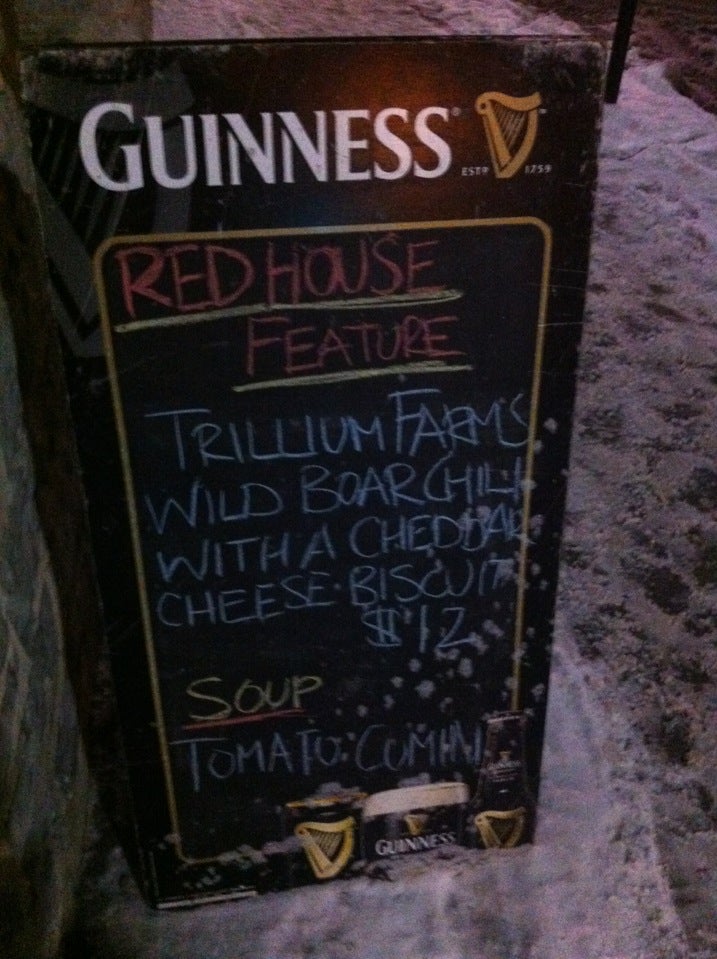 GUINNESS
ESTD 1759
RED HOUSE
FEATURE
TRILLIUM FARMS
WILD BOAR CHILI
WITH A CHEDDAR
CHEESE BISCUIT
$12
SOUP
TOMATO CUMIN
GUINNESS